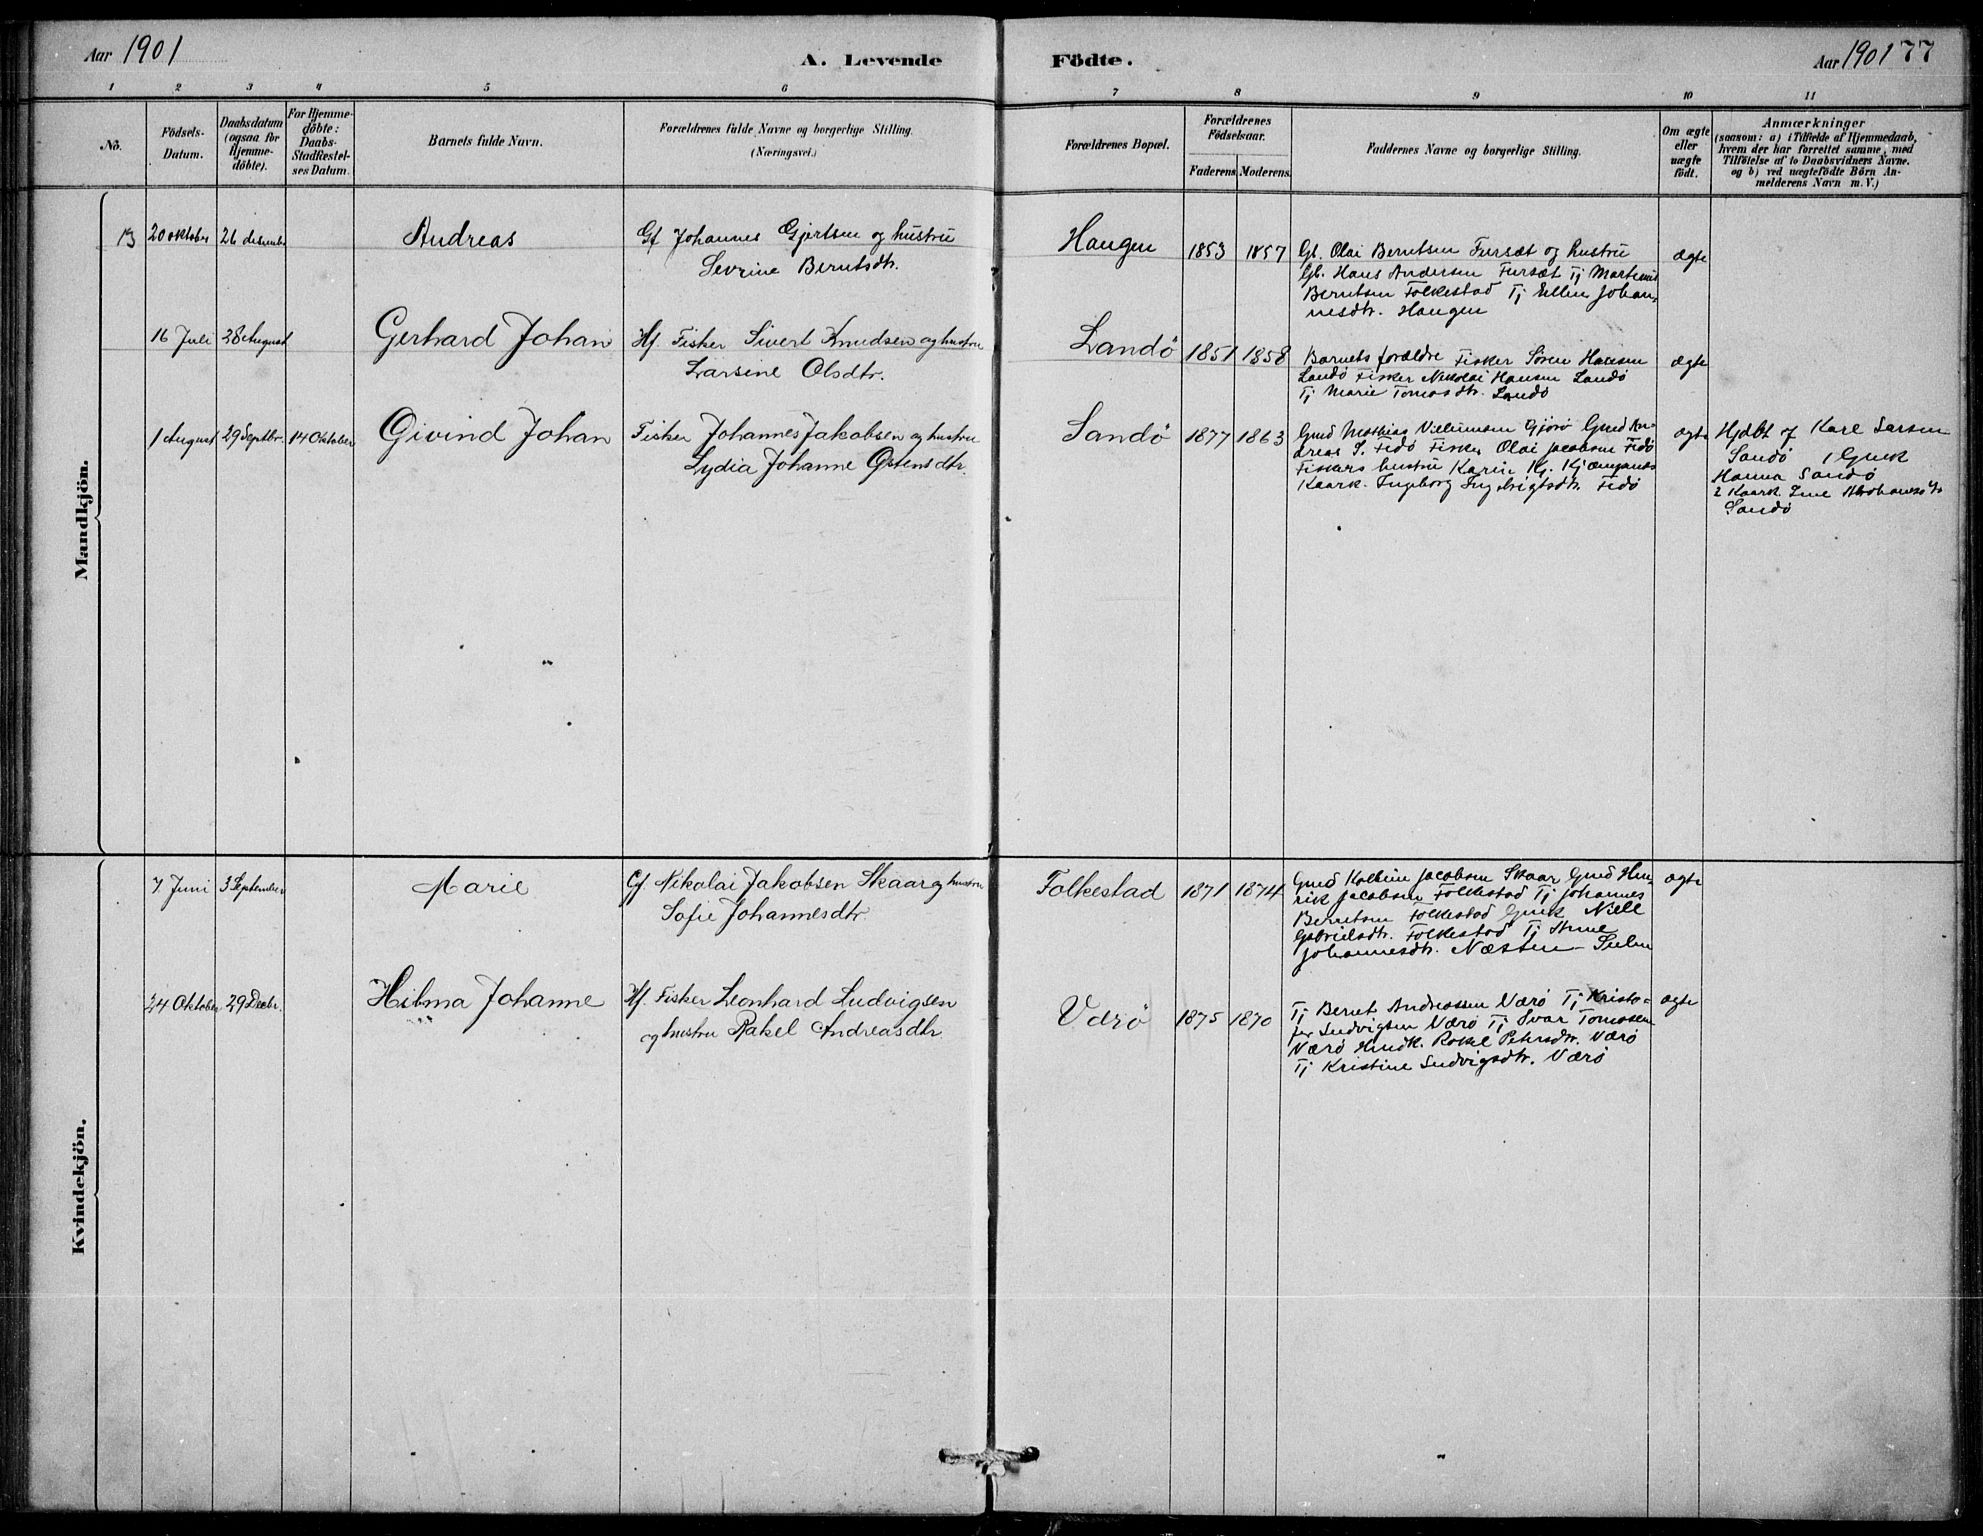 Aar 1901
A. Levende
Födte.
Aar 1901 77
1 2 3 4 5 6 7 8 9 10 11
No.
Födsels-
Datum.
Daabsdatum
(ogsaa for
Hjemme-
döbte).
For Hjemme-
döbte:
Daabs-
Stadfæstel-
ses Datum.
Barnets fulde Navn.
Forældrenes fulde Navne og borgerlige Stilling.
(Næringsvei.)
Forældrenes Bopæl.
Forældrenes
Födselsaar.
Faderens Moderens
Faddernes Navne og borgerlige Stilling.
Om ægte
eller
uægte
födt.
Anmærkninger
(saasom: a) i Tilfælde af Hjemmedaab,
hvem der har forrettet samme, med
Tilföielse af to Daabsvidners Navne.
og b) ved uægtefödte Börn An-
melderens Navn m. V.)
Mandkjön.
13 20 oktober 26 desember Andreas
Gf Johannes Gjertsen og hustru
Sevrine Berntsdtr.
Haugen 1853 1857
Gb. Olai Berntsen Fursæt og hustru
Gb. Hans Andersen Fursæt Tj Martinus
Berntsen Folkestad Tj Ellen Johan-
nesdtr. Haugen
ægte
16 Juli 28 August Gerhard Johan
Hf. Fisker Sivert Knudsen og hustru
Larsine Olsdtr.
Landö 1851 1858
Barnets forældre Fisker Sören Hansen
Landö Fisker Nikolai Hansen Landö
Tj Marie Tomasdtr. Landö
ægte
1 August 29 Septbr. 14 Oktober Eivind Johan
Fisker Johannes Jakobsen og hustru
Lydia Johanne Østensdtr.
Sandö 1877 1863
Gmd Mathias Villumsen Gjörö Gmd An-
dreas S. Fedö Fisker Olai Jacobsen Fedö
Fiskers hustru Karin Kj.
Kaark. Ingeborg Ingebrigtsdtr. Fedö
ægte
Hjdbt af Karl Larsen
Sandö 1 Gmk
Hanna Sandö
2 Kaark. Line
Sandö
Kvindekjön.
7 Juni 3 September Marie
Gf. Nikolai Jakobsen Skaar og hustru
Sofie Johannesdtr.
Folkestad 1871 1874
Gmd Kolbein Jacobsen Skaar Gmd Hen-
rik Jacobsen Folkestad Tj Johannes
Berntsen Folkestad Gmk
Gabrielsdtr. Folkestad Tj
Johannesdtr. Næsten
ægte
24 Oktober 29 Decbr. Hilma Johanne
Hf. Fisker Leonhard Ludvigsen
og hustru Rakel Andreasdtr
Værö 1875 1870
Tj Bernt Andreassen Værö Tj Kristo-
fer Ludvigsen Værö Tj Ivar Tomasen
Værö Hmdk. Rakel Petersdtr. Værö
Tj Kristine Ludvigsdtr. Værö
ægte